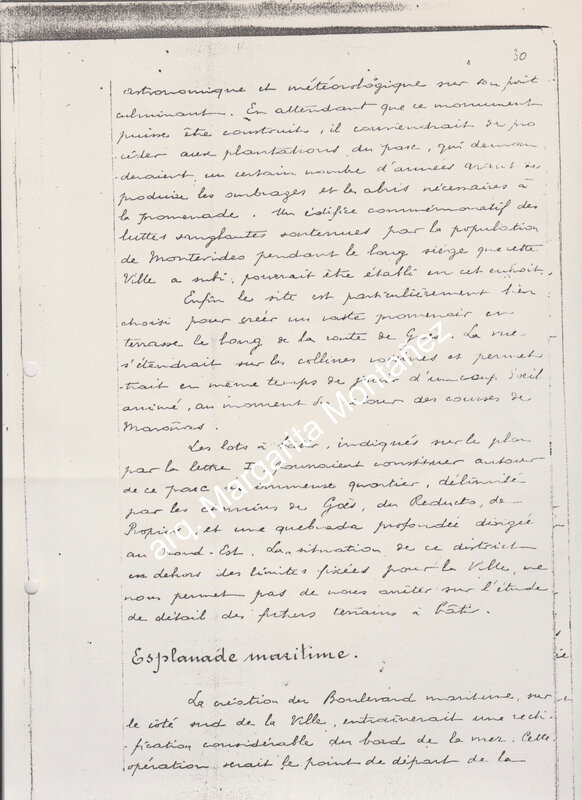 30
astronomique et météorologique sur son point
culminant. En attendant que ce monument
puisse être construit, il conviendrait de pro
céder aux plantations du parc, qui deman
deraient un certain nombre d'années avant de
produire les ombrages et les abris nécessaires à
la promenade. Un édifice commémoratif des
luttes sanglantes soutenues par la population
de Montevideo pendant le long siège que cette
Ville a subi, pourrait être établi en cet endroit.
Enfin le site est particulièrement bien
choisi pour créer un vaste promenoir en
terrasse le long de la route de Goës. La vue
s'étendrait sur les collines voisines et permet
-trait en même temps de jouir d'un coup d'oeil
animé, au moment du retour des courses de
Maroñas.
Les lots à bâtir, indiqués sur le plan
par la lettre I, pourraient constituer autour
de ce parc un immense quartier, délimité
par les chemins de Goës, du Reducto, de
et une quebrada profonde dirigée
au Nord-Est. La situation de ce district
en dehors des limites fixées pour la Ville, ne
nous permet pas de nous arrêter sur l'étude
de détail des terrains à bâtir.
Esplanade maritime.
La création du Boulevard maritime, sur
le côté sud de la Ville, entraînerait une recti
-fication considérable du bord de la mer. Cette
opération serait le point de départ de la
arq. Margarita Montañez